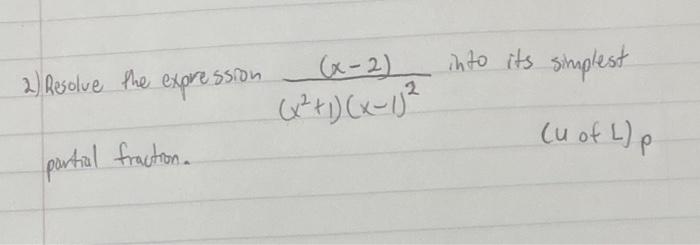 2) Resolve the expression (x-2) / (x²+1)(x-1)² into its simplest
(U of L) p
partial fraction.